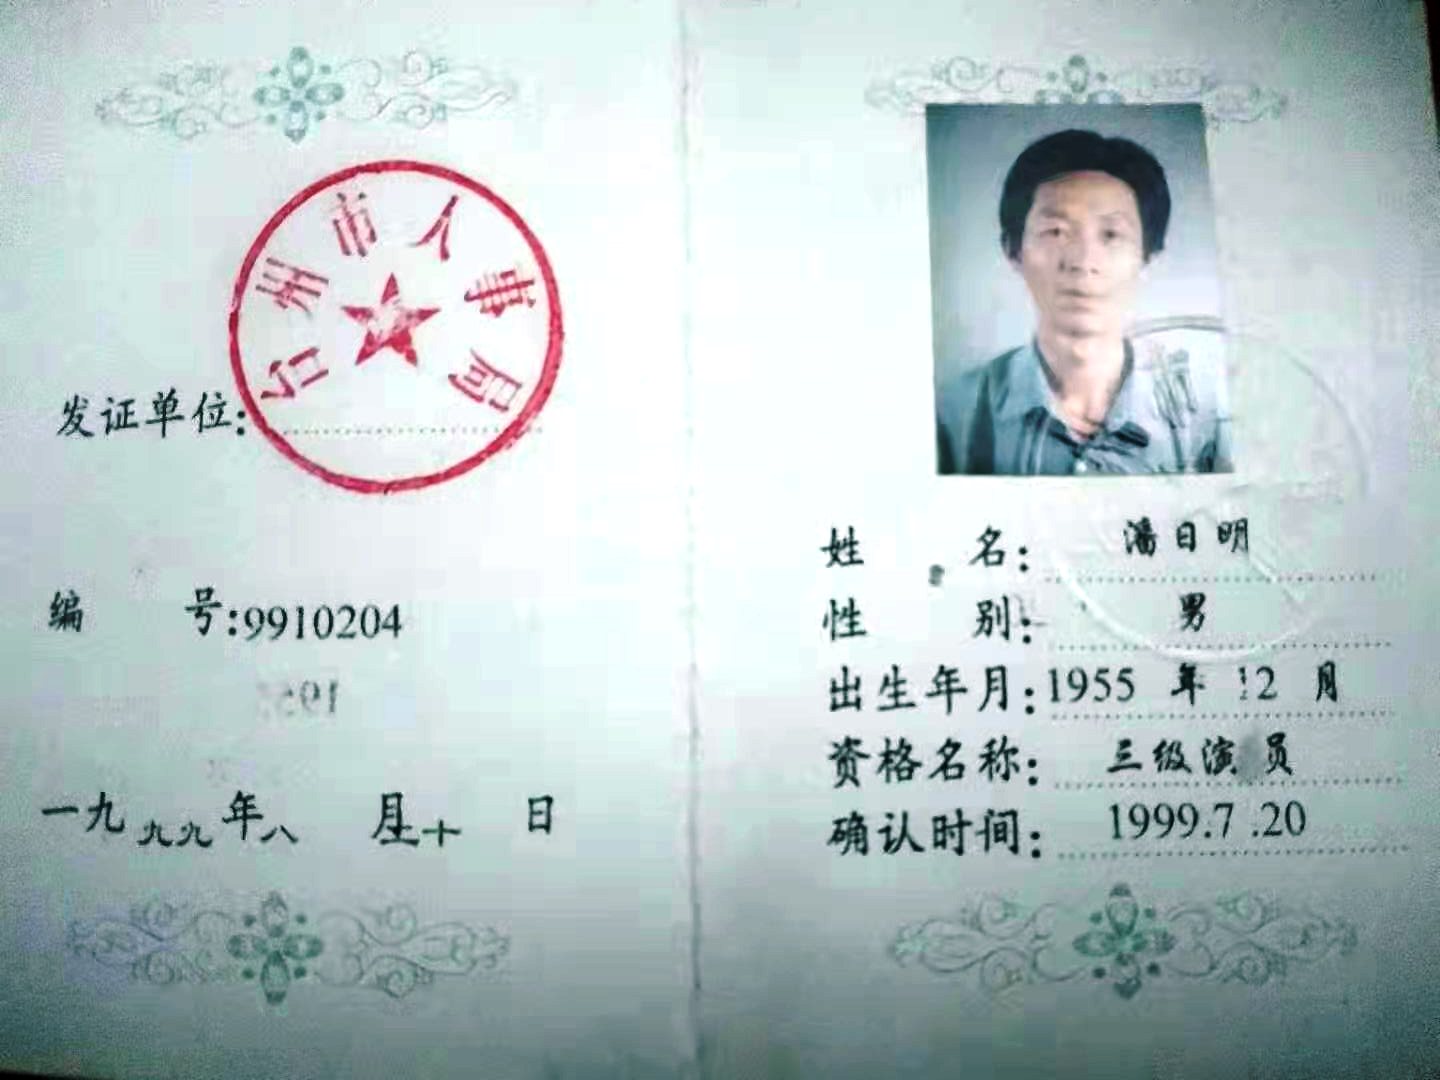 台州市人事局
发证单位:
编 号:9910204
一九九九年八月二十日
姓 名: 潘日明
性 别: 男
出生年月: 1955 年 12 月
资格名称: 三级演员
确认时间: 1999.7.20